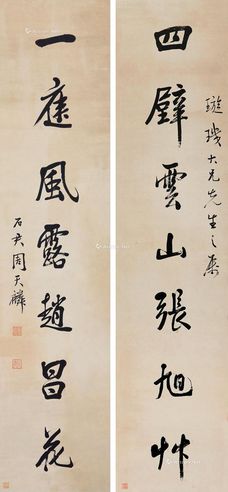 璇璣大兄先生之屬
四壁雲山張旭艸
一庭風露趙昌花
石君周天麟